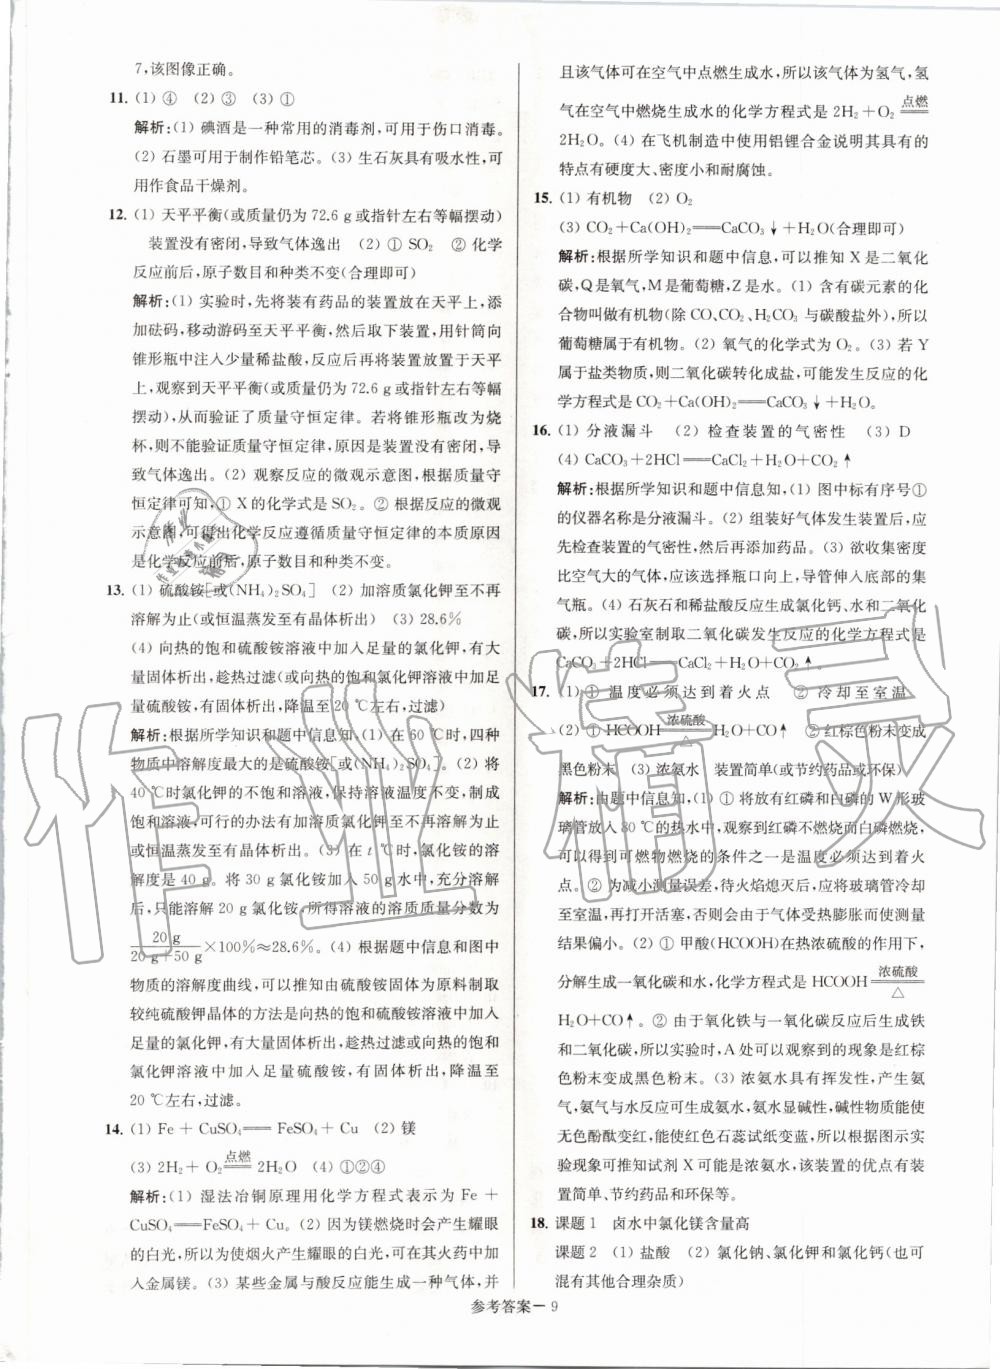 7,该图像正确。
11. (1) ④ (2) ③ (3) ①
解析:(1) 碘酒是一种常用的消毒剂,可用于伤口消毒。
(2) 石墨可用于制作铅笔芯。(3) 生石灰具有吸水性,可
用作食品干燥剂。
12. (1) 天平平衡(或质量仍为 72.6 g 或指针左右等幅摆动)
装置没有密闭,导致气体逸出 (2) ① SO₂ ② 化学
反应前后,原子数目和种类不变(合理即可)
解析:(1) 实验时,先将装有药品的装置放在天平上,添
加砝码,移动游码至天平平衡,然后取下装置,用针筒向
锥形瓶中注入少量稀盐酸,反应后再将装置放置于天平
上,观察到天平平衡(或质量仍为 72.6 g 或指针左右等幅
摆动),从而验证了质量守恒定律。若将锥形瓶改为烧
杯,则不能验证质量守恒定律,原因是装置没有密闭,导
致气体逸出。(2) 观察反应的微观示意图,根据质量守
恒定律可知,① X 的化学式是 SO₂。② 根据反应的微观
示意图,可得出化学反应遵循质量守恒定律的本质原因
是化学反应前后,原子数目和种类不变。
13. (1) 硫酸铵[或(NH₄)₂SO₄] (2) 加溶质氯化钾至不再
溶解为止(或恒温蒸发至有晶体析出) (3) 28.6%
(4) 向热的饱和硫酸铵溶液中加入足量的氯化钾,有大
量固体析出,趁热过滤(或向热的饱和氯化钾溶液中加足
量硫酸铵,有固体析出,降温至 20 ℃左右,过滤)
解析:根据所学知识和题中信息知,(1) 在 60 ℃时,四种
物质中溶解度最大的是硫酸铵[或(NH₄)₂SO₄]。(2) 将
40 ℃时氯化钾的不饱和溶液,保持溶液温度不变,制成
饱和溶液,可行的办法有加溶质氯化钾至不再溶解为止
或恒温蒸发至有晶体析出。(3) 在 t ℃时,氯化铵的溶
解度是 40 g。将 30 g 氯化铵加入 50 g 水中,充分溶解
后,只能溶解 20 g 氯化铵,所得溶液的溶质质量分数为
20 g
20 g+50 g ×100%≈28.6%。(4) 根据题中信息和图中
物质的溶解度曲线,可以推知由硫酸铵固体为原料制取
较纯硫酸钾晶体的方法是向热的饱和硫酸铵溶液中加入
足量的氯化钾,有大量固体析出,趁热过滤或向热的饱和
氯化钾溶液中加入足量硫酸铵,有固体析出,降温至
20 ℃左右,过滤。
14. (1) Fe + CuSO₄══FeSO₄ + Cu (2) 镁
(3) 2H₂ + O₂ 点燃══ 2H₂O (4) ①②④
解析:(1) 湿法冶铜原理用化学方程式表示为 Fe +
CuSO₄══FeSO₄ + Cu。(2) 因为镁燃烧时会产生耀眼
的白光,所以为使烟火产生耀眼的白光,可在其火药中加
入金属镁。(3) 某些金属与酸反应能生成一种气体,并
且该气体可在空气中点燃生成水,所以该气体为氢气,氢
气在空气中燃烧生成水的化学方程式是 2H₂+O₂ 点燃══
2H₂O。(4) 在飞机制造中使用铝锂合金说明其具有的
特点有硬度大、密度小和耐腐蚀。
15. (1) 有机物 (2) O₂
(3) CO₂+Ca(OH)₂══CaCO₃↓+H₂O(合理即可)
解析:根据所学知识和题中信息,可以推知 X 是二氧化
碳,Q是氧气,M是葡萄糖,Z是水。(1) 含有碳元素的化
合物叫做有机物(除 CO、CO₂、H₂CO₃ 与碳酸盐外),所以
葡萄糖属于有机物。(2) 氧气的化学式为 O₂。(3) 若 Y
属于盐类物质,则二氧化碳转化成盐,可能发生反应的化
学方程式是 CO₂+Ca(OH)₂══CaCO₃↓+H₂O。
16. (1) 分液漏斗 (2) 检查装置的气密性 (3) D
(4) CaCO₃+2HCl══CaCl₂+H₂O+CO₂↑
解析:根据所学知识和题中信息知,(1) 图中标有序号①
的仪器名称是分液漏斗。(2) 组装好气体发生装置后,应
先检查装置的气密性,然后再添加药品。(3) 欲收集密度
比空气大的气体,应该选择瓶口向上,导管伸入底部的集
气瓶。(4) 石灰石和稀盐酸反应生成氯化钙、水和二氧化
碳,所以实验室制取二氧化碳发生反应的化学方程式是
CaCO₃+2HCl══CaCl₂+H₂O+CO₂↑。
17. (1) ① 温度必须达到着火点 ② 冷却至室温
(2) ① HCOOH 浓硫酸══△ H₂O+CO↑ ② 红棕色粉末变成
黑色粉末 (3) 浓氨水 装置简单(或节约药品或环保)
解析:由题中信息知,(1) ① 将放有红磷和白磷的 W 形玻
璃管放入 80 ℃的热水中,观察到红磷不燃烧而白磷燃烧,
可以得到可燃物燃烧的条件之一是温度必须达到着火
点。② 为减小测量误差,待火焰熄灭后,应将玻璃管冷却
至室温,再打开活塞,否则会由于气体受热膨胀而使测量
结果偏小。(2) ① 甲酸(HCOOH)在热浓硫酸的作用下,
分解生成一氧化碳和水,化学方程式是 HCOOH 浓硫酸══△
H₂O+CO↑。② 由于氧化铁与一氧化碳反应后生成铁
和二氧化碳,所以实验时,A 处可以观察到的现象是红棕
色粉末变成黑色粉末。(3) 浓氨水具有挥发性,产生氨
气,氨气与水反应可生成氨水,氨水显碱性,碱性物质能使
无色酚酞变红,能使红色石蕊试纸变蓝,所以根据图示实
验现象可推知试剂 X 可能是浓氨水,该装置的优点有装
置简单、节约药品和环保等。
18. 课题 1 卤水中氯化镁含量高
课题 2 (1) 盐酸 (2) 氯化钠、氯化钾和氯化钙(也可
混有其他合理杂质)
参考答案— 9
作业精灵